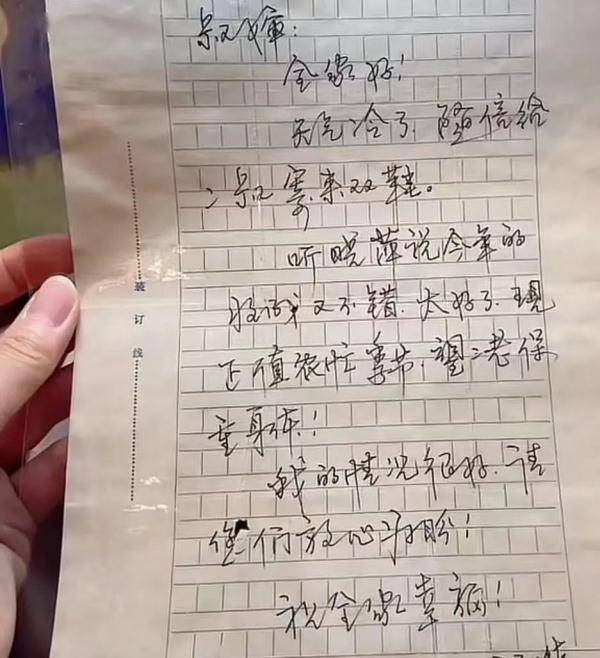 叔婶:
全家好!
天气冷了,随信给
二叔寄来双鞋。
听晓萍说今年的
收成又不错,太好了,现
正值农忙季节,望二老保
重身体!
我的情况很好,请
您们放心勿盼!
祝全家幸福!
装订线